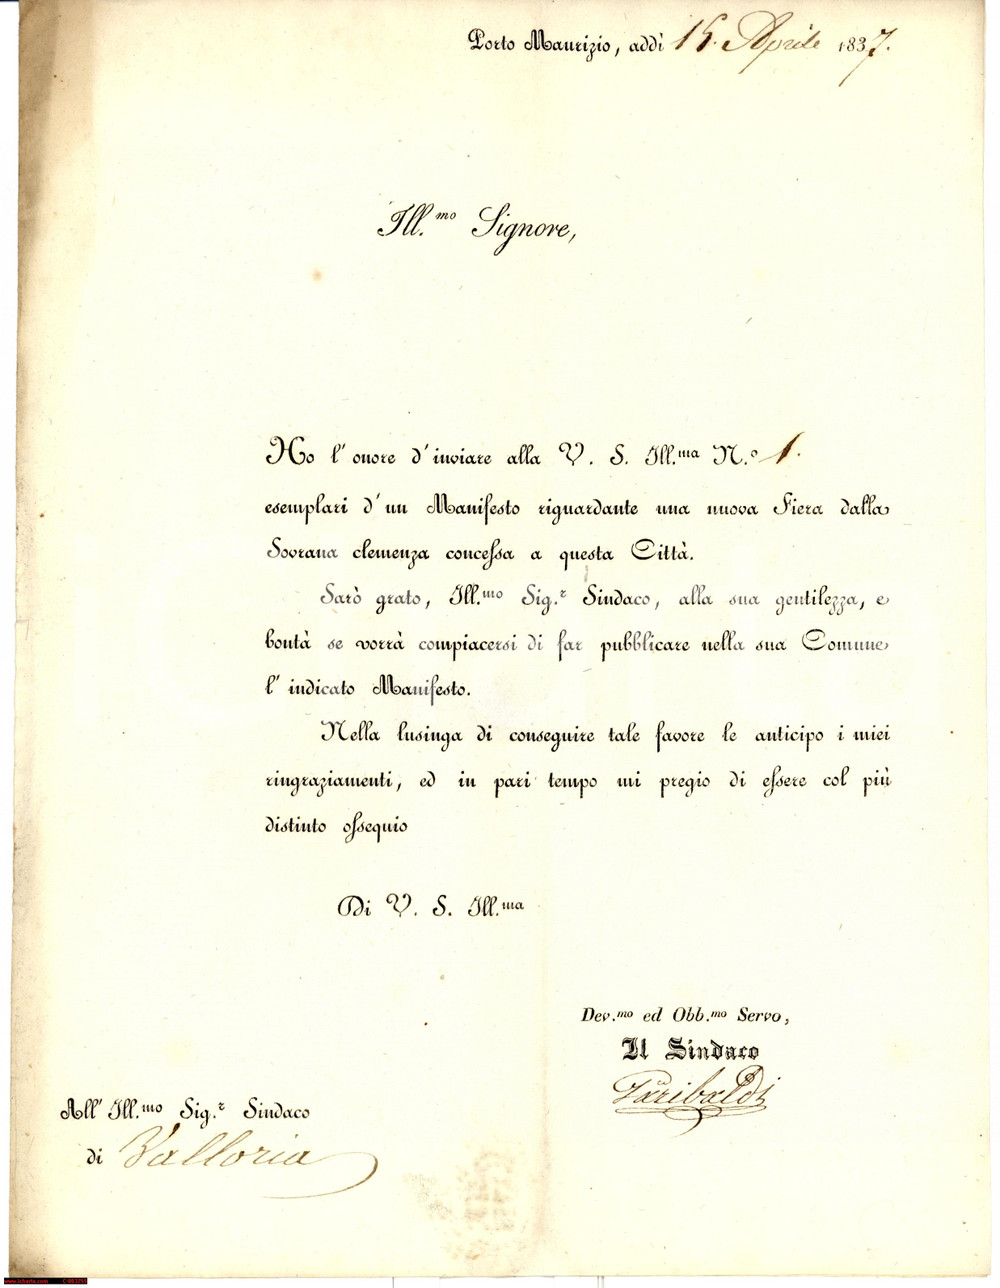 Porto Maurizio, addì 15. Aprile 1837.
Ill.mo Signore,
Ho l'onore d'inviare alla V. S. Ill.ma N.o 1.
esemplari d'un Manifesto riguardante una nuova Fiera dalla
Sovrana clemenza concessa a questa Città.
Sarò grato, Ill.mo Sig.r Sindaco, alla sua gentilezza, e
bontà se vorrà compiacersi di far pubblicare nella sua Comune
l'indicato Manifesto.
Nella lusinga di conseguire tale favore le anticipo i miei
ringraziamenti, ed in pari tempo mi pregio di essere col più
distinto ossequio
Di V. S. Ill.ma
Dev.mo ed Obb.mo Servo,
Il Sindaco
Garibaldi
All' Ill.mo Sig.r Sindaco
di Valloria